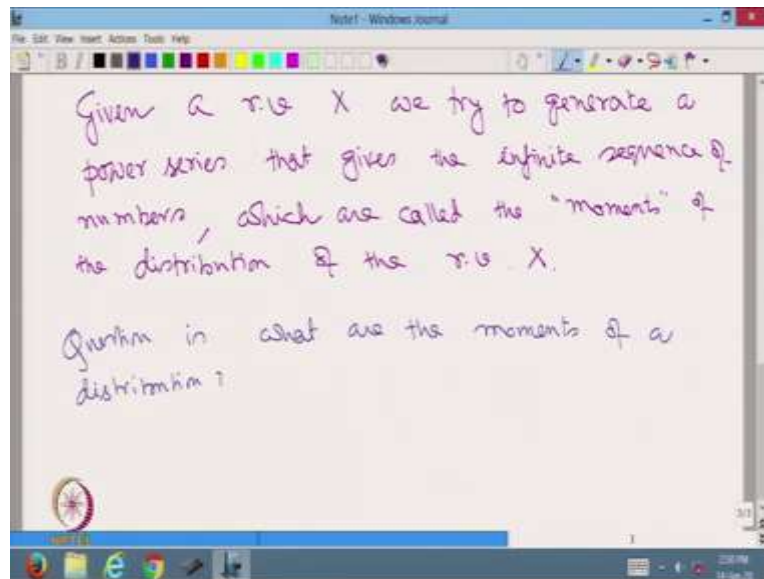 Note1 - Windows Journal
File Edit View Insert Actions Tools Help
Given a r.v X we try to generate a
power series that gives the infinite sequence of
numbers, which are called the "moments" of
the distribution of the r.v. X.
Question is what are the moments of a
distribution?
NPTEL
3/3
3
2:50 PM